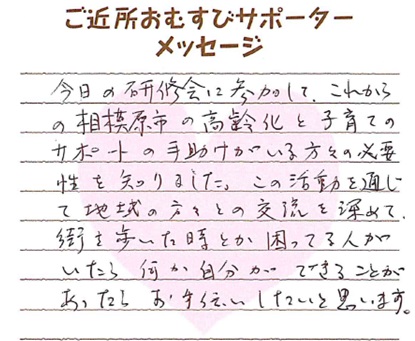 ご近所おむすびサポーター
メッセージ
今日の研修会に参加して、これから
の相模原市の高齢化と子育ての
サポートの手助けがいる方々の必要
性を知りました。この活動を通じ
て地域の方々との交流を深めて、
街を歩いた時とか困ってる人が
いたら何か自分ができることが
あったらお手伝いしたいと思います。